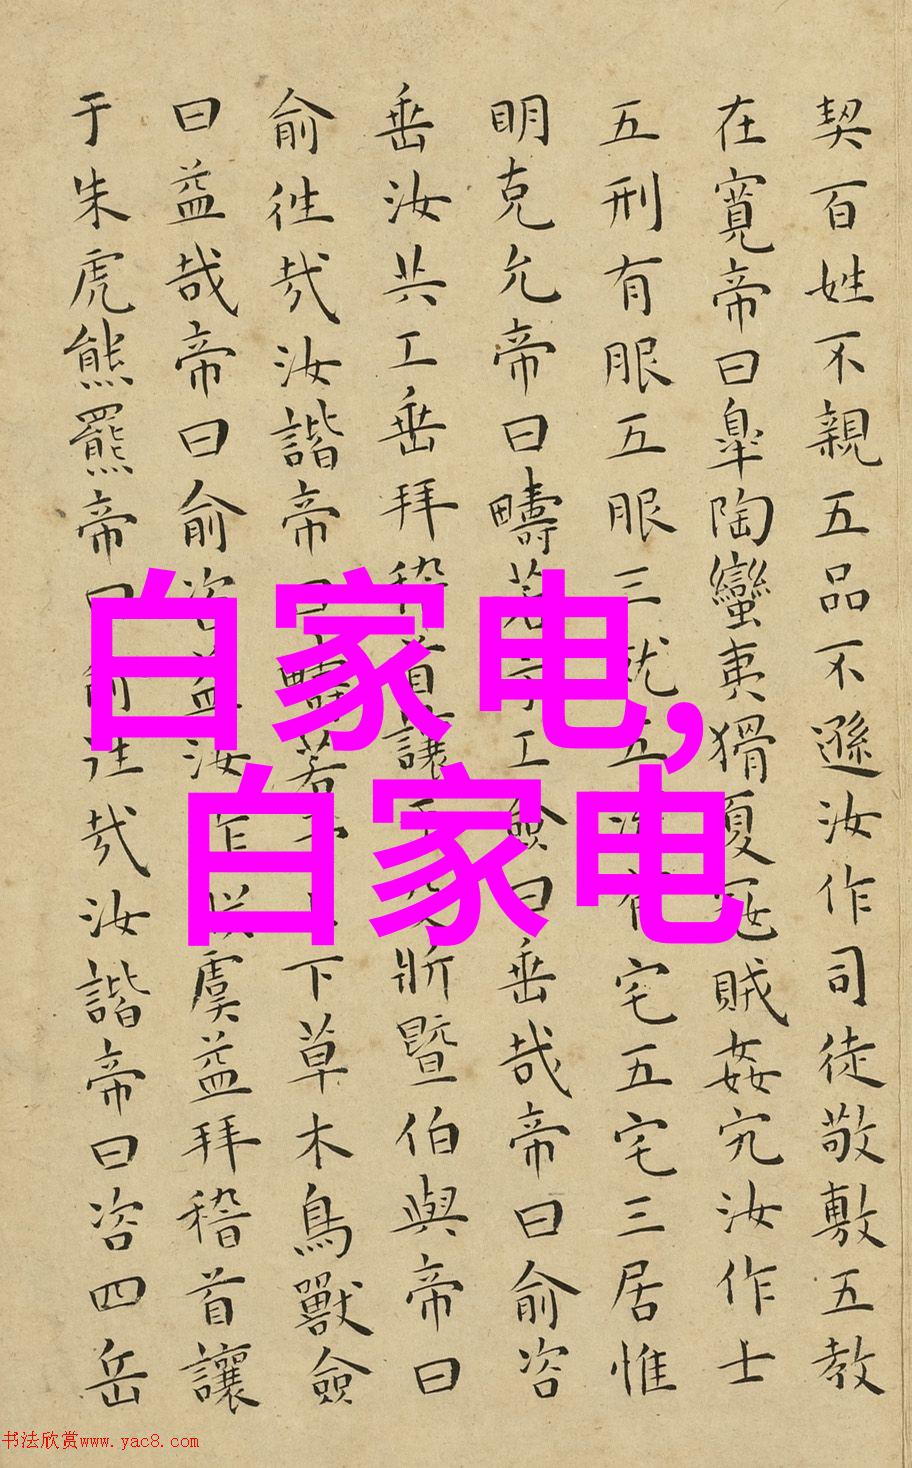 契百姓不親五品不遜汝作司徒敬敷五教
在寬帝曰臯陶蠻夷猾夏寇賊姦宄汝作士
五刑有服五服三就五流有宅五宅三居惟
明克允帝曰疇若予工僉曰垂哉帝曰俞咨
垂汝共工垂拜稽首讓于殳斨暨伯與帝曰
俞往哉汝諧帝曰疇若予上下草木鳥獸僉
曰益哉帝曰俞咨益汝作朕虞益拜稽首讓
于朱虎熊羆帝曰俞往哉汝諧帝曰咨四岳
白家电,
白家电
书法欣赏www.yac8.com